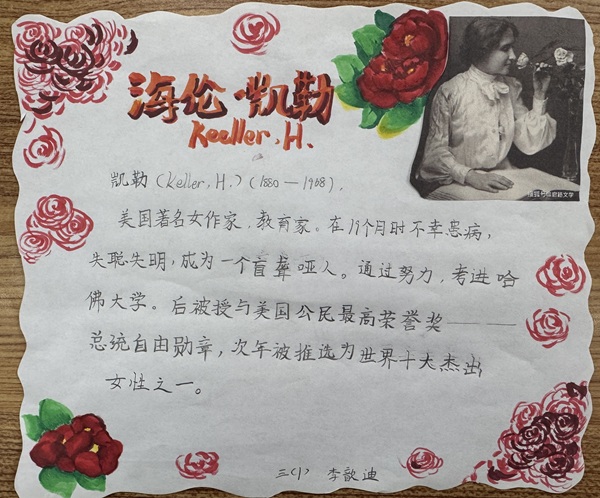 海伦·凯勒
Keeller, H.
凯勒（Keller, H.）（1880—1968）.
美国著名女作家，教育家。在19个月时不幸患病，
失聪失明，成为一个盲聋哑人。通过努力，考进哈
佛大学。后被授与美国公民最高荣誉奖———
总统自由勋章，次年被推选为世界十大杰出
女性之一。
三(1) 李歆迪